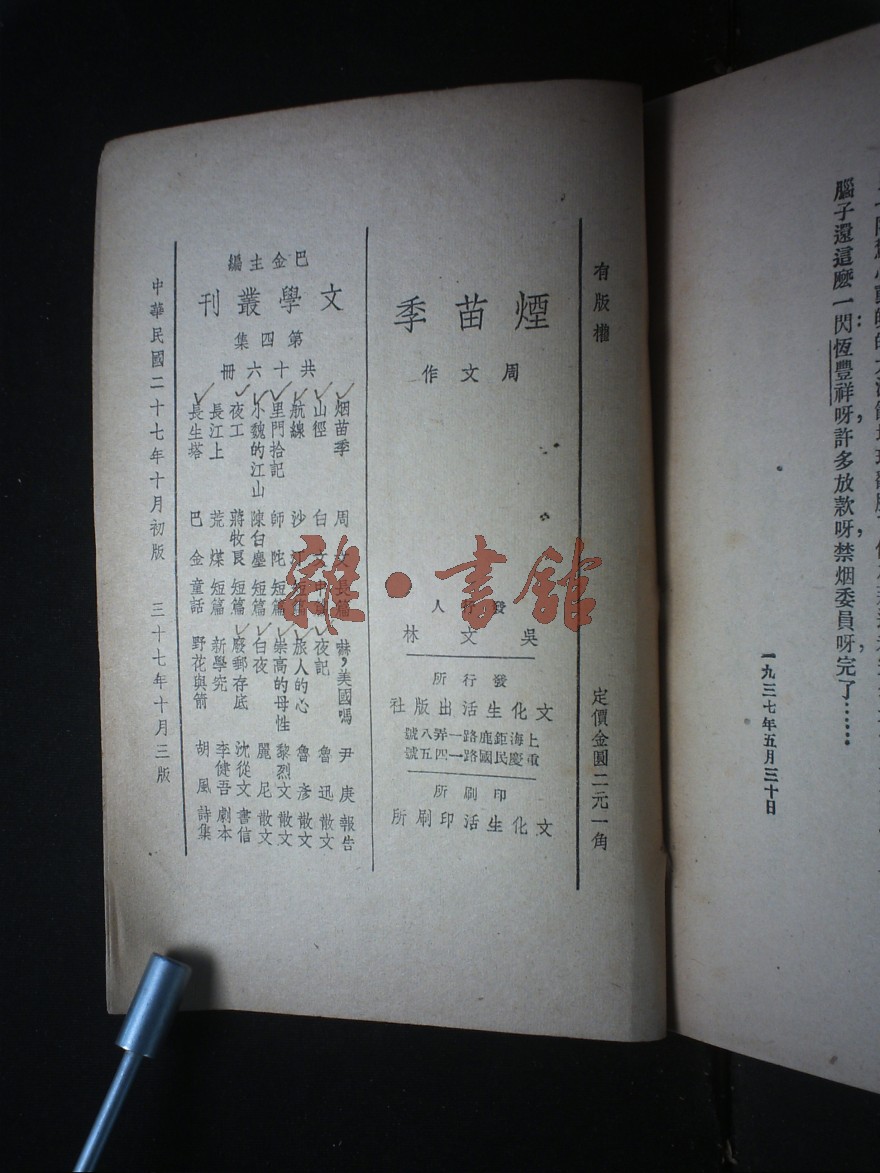 腦子還這麼一閃：恆豐祥呀，許多放款呀，禁烟委員呀，完了……
一九三七年五月三十日
有版權
定價金圓二元一角
煙苗季
周文作
發行人
吳文林
發行所
文化生活出版社
上海鉅鹿路一弄八號
重慶民國路一四五號
印刷所
文化生活印刷所
巴金主編
文學叢刊
第四集
共十六冊
烟苗季 周文 長篇
山徑 白文 中篇
航線 沙汀 短篇
里門拾記 師陀 短篇
小魏的江山 陳白塵 短篇
夜工 蔣牧良 短篇
長江上 荒煤 短篇
長生塔 巴金 童話
嚇，美國嗎 尹庚 報告
夜記 魯迅 散文
旅人的心 魯彥 散文
崇高的母性 黎烈文 散文
白夜 麗尼 散文
廢郵存底 沈從文 書信
新學究 李健吾 劇本
野花與箭 胡風 詩集
中華民國二十七年十月初版 三十七年十月三版
雜·書館